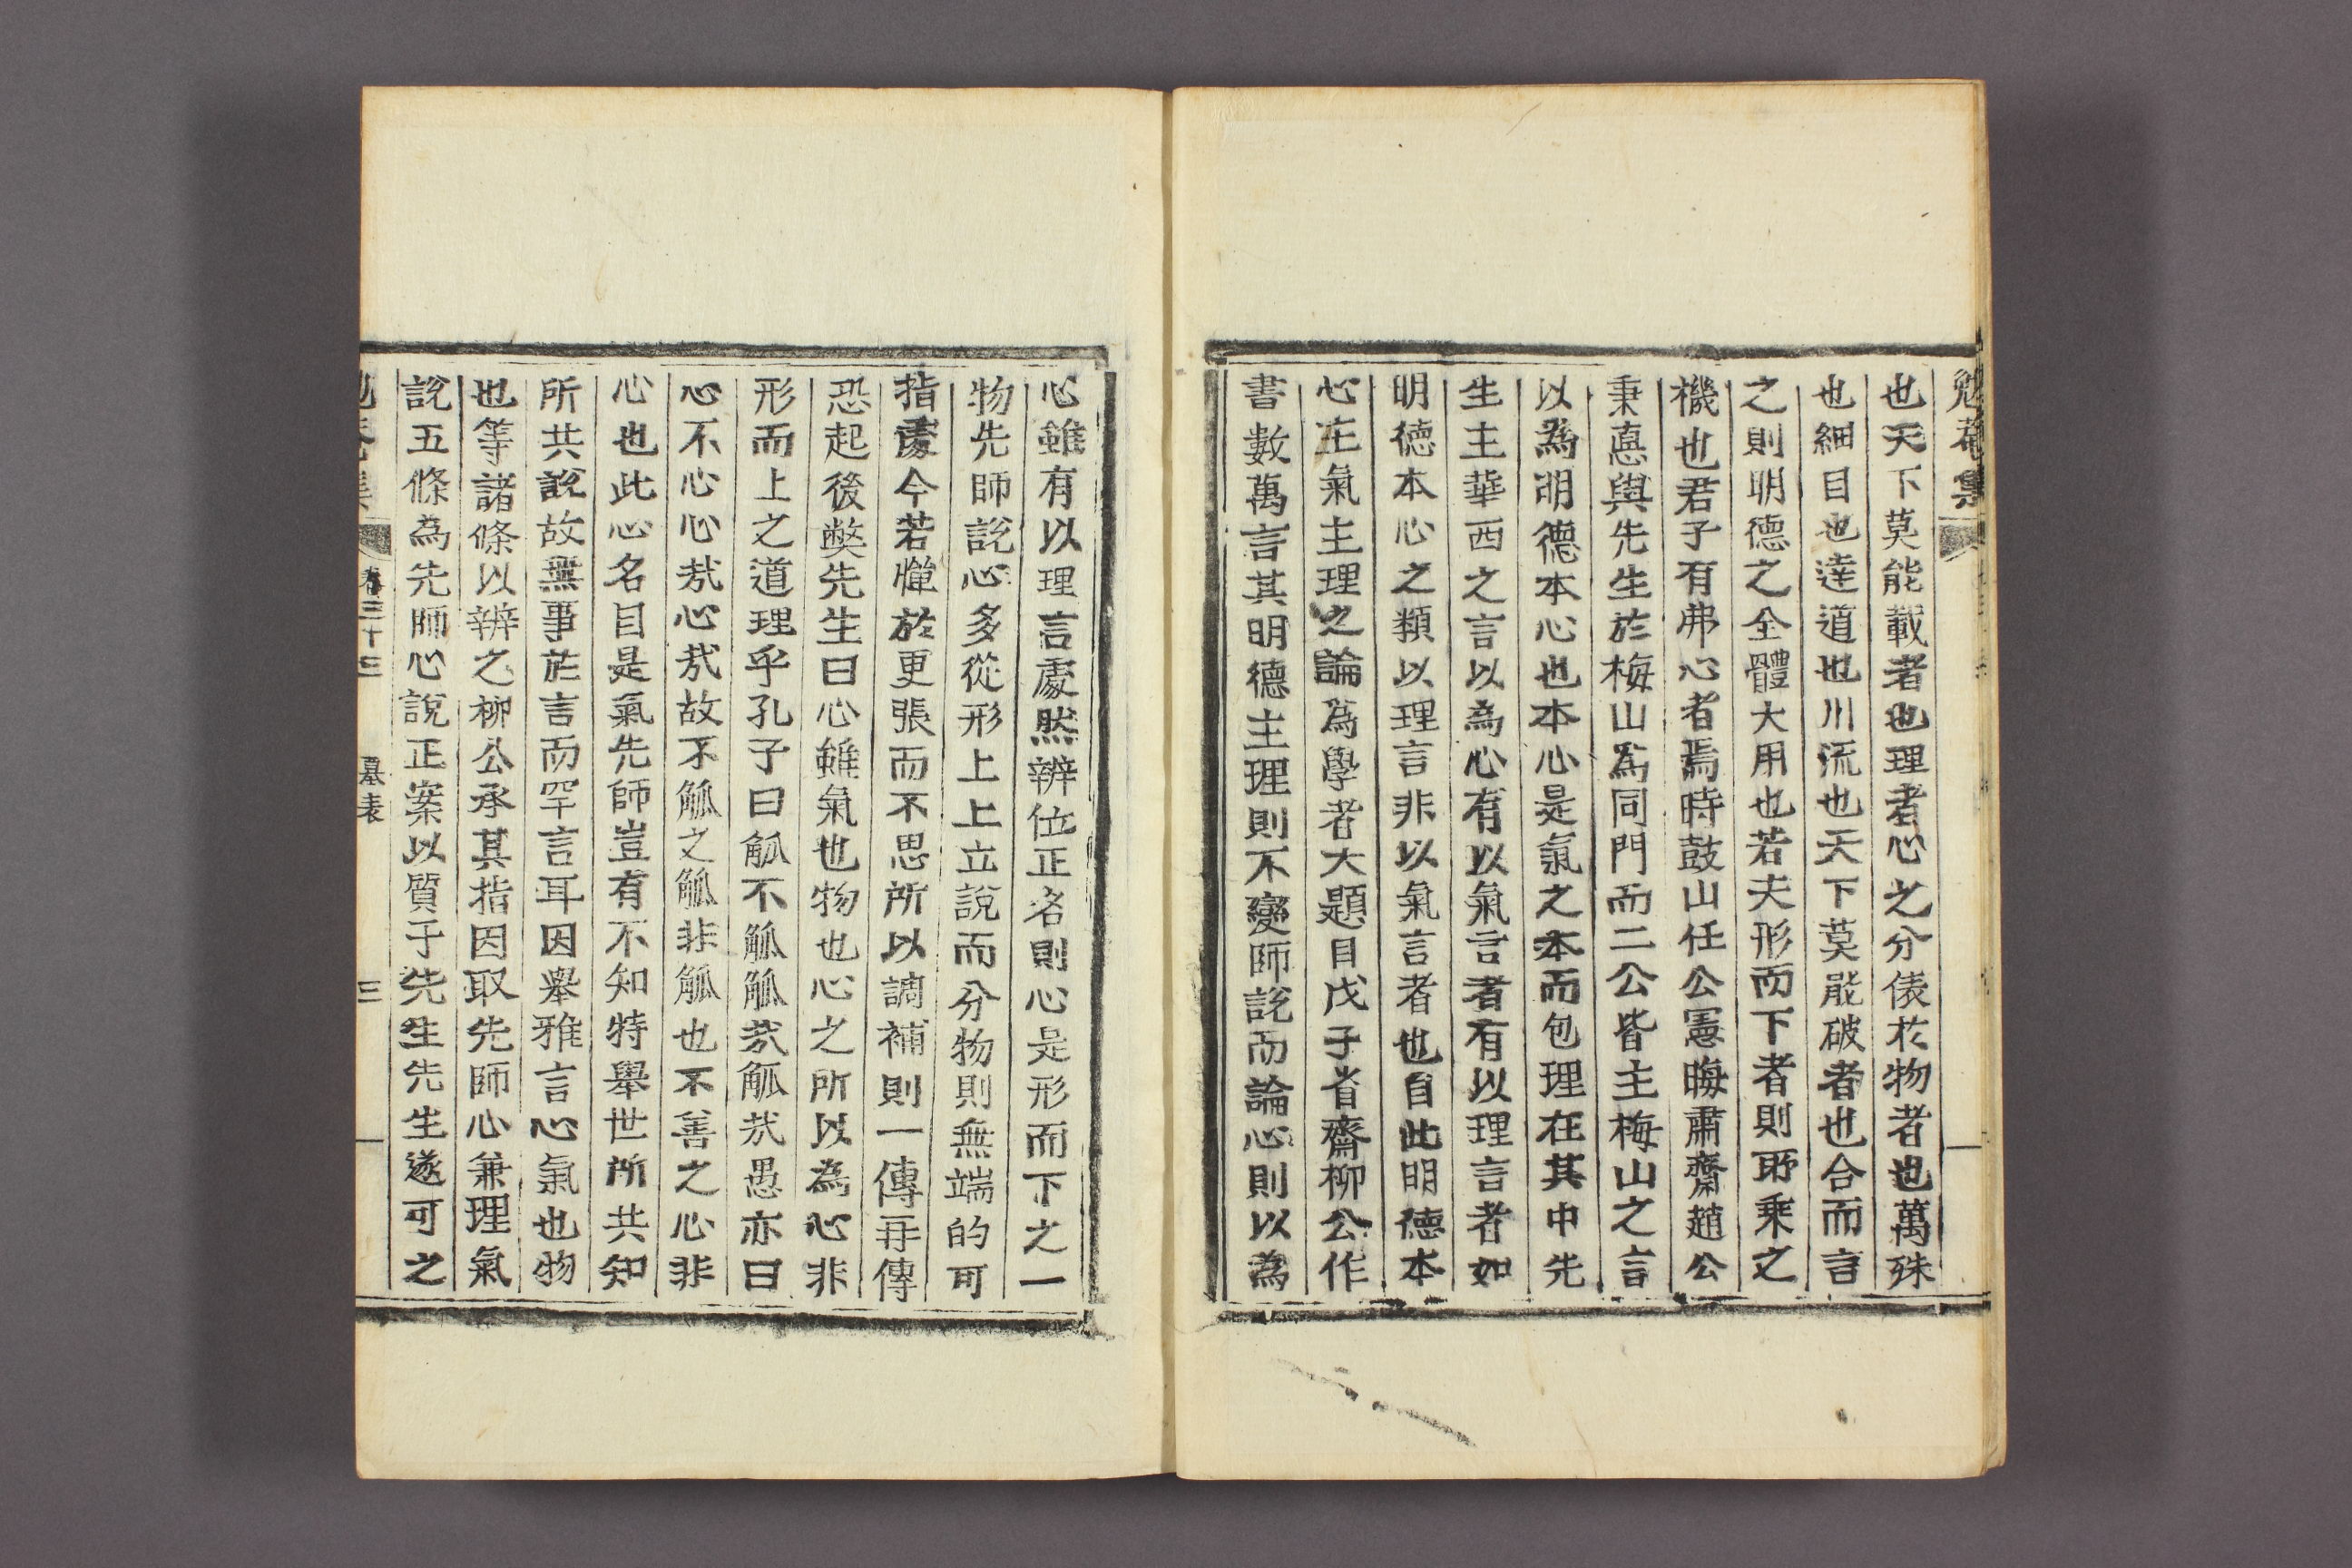 勉菴集
也天下莫能載者也理者心之分俵於物者也萬殊
也細目也達道也川流也天下莫能破者也合而言
之則明德之全體大用也若夫形而下者則所乘之
機也君子有弗心者焉時鼓山任公憲晦肅齋趙公
秉悳與先生於梅山爲同門而二公皆主梅山之言
以爲明德本心也本心是氣之本而包理在其中先
生主華西之言以爲心有以氣言者有以理言者如
明德本心之類以理言非以氣言者也自此明德本
心主氣主理之論爲學者大題目戊子省齋柳公作
書數萬言其明德主理則不變師說而論心則以爲
心雖有以理言處然辨位正名則心是形而下之一
物先師說心多從形上上立說而分物則無端的可
指處今若憚於更張而不思所以調補則一傳再傳
恐起後弊先生曰心雖氣也物也心之所以為心非
形而上之道理乎孔子曰觚不觚觚哉觚哉愚亦曰
心不心心哉心哉故不觚之觚非觚也不善之心非
心也此心名目是氣先師豈有不知特舉世所共知
所共說故無事於言而罕言耳因舉雅言心氣也物
也等諸條以辨之柳公承其指因取先師心兼理氣
說五條為先師心說正案以質于先生先生遂可之
卷三十三
墓表
三